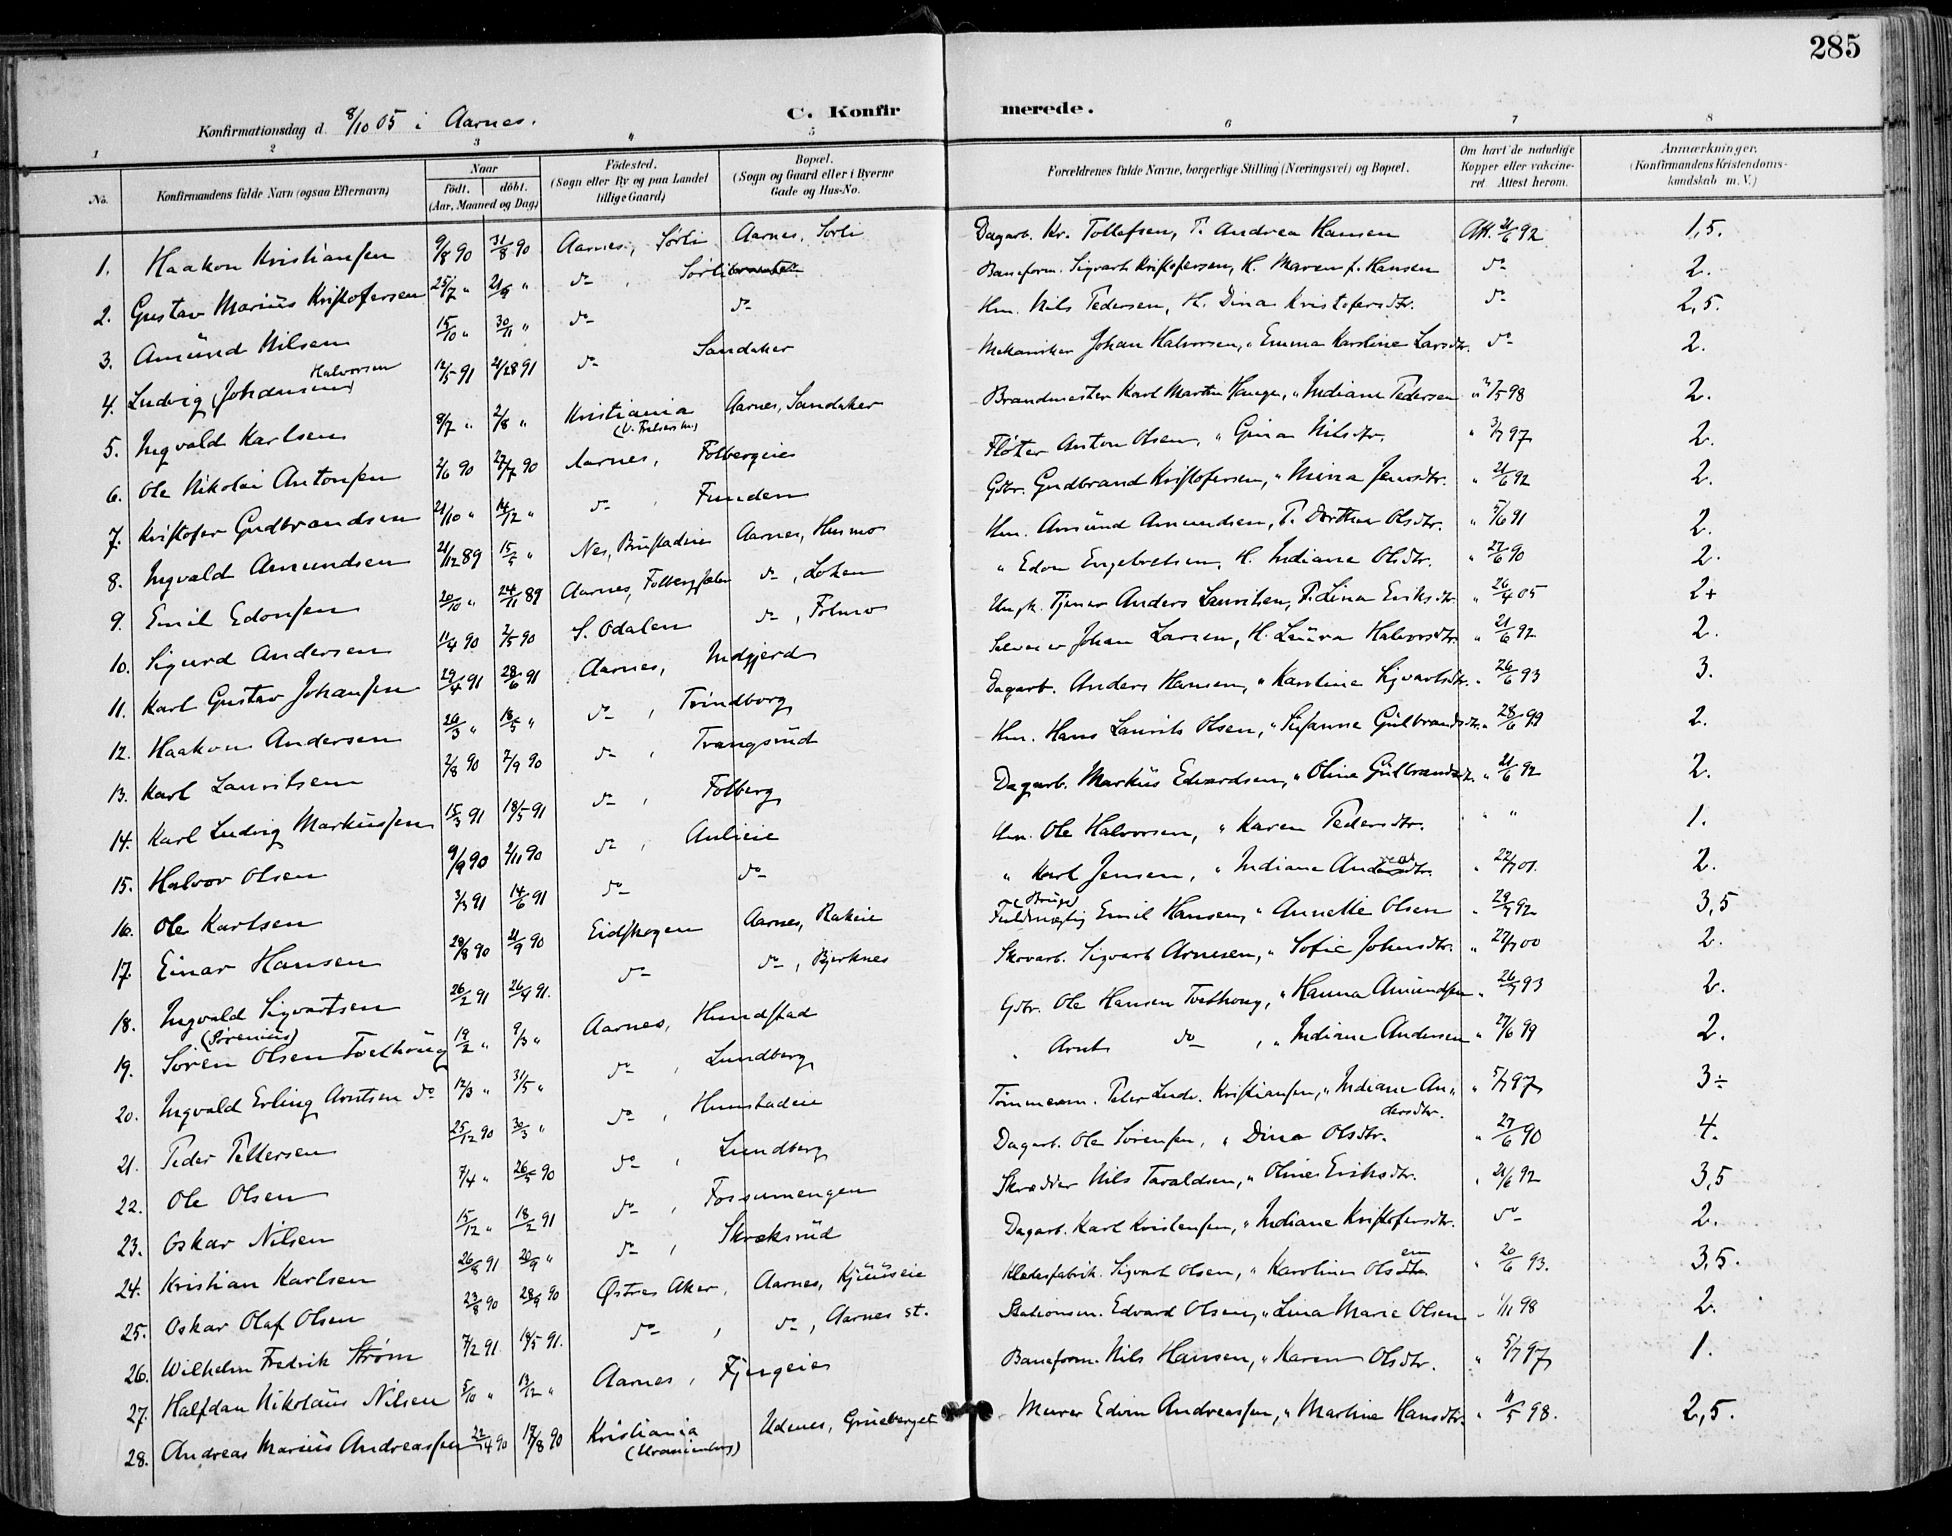 285
Konfirmationsdag d. 8/10 05 i Aarnes.
C. Konfirmerede.
1 2 3 4 5 6 7 8
No. | Konfirmandens fulde Navn (ogsaa Efternavn) | Naar født. døbt. (Aar, Maaned og Dag) | Fødested. (Sogn eller By og paa Landet tillige Gaard) | Bopæl. (Sogn og Gaard eller i Byerne Gade og Hus-No. | Forældrenes fulde Navne, borgerlige Stilling (Næringsvei) og Bopæl. | Om havt de naturlige Kopper eller vakcineret Attest herom. | Anmærkninger. (Konfirmandens Kristendomskundskab m. V.)
1. Haakon Kristiansen 9/8 90 31/8 90 Aarnes, Sørli Aarnes, Sørli Dagarb. Kr. Tollefsen, P. Andrea Hansen Att. 21/6 92 1,5.
2. Gustav Marius Kristofersen 25/7 " 21/9 " do , Sørli Baneform. Sigvart Kristofersen, H. Maren f. Hansen do 2.
3. Amund Nilsen 15/10 " 30/11 " do do Hm. Nils Pedersen, H. Dina Kristofersdtr. do 2,5.
4. Ludvig Johansen Halvorsen 12/5 91 do Sandaker Mekaniker Johan Halvorsen, " Emma Karoline Larsdtr. do 2.
5. Ingvald Karlsen 8/7 " 2/8 " Kristiania (V. Frelsers m.) Aarnes, Sandaker Brandmester Karl Martin Hauger, " Indiane Pedersen " 98 2.
6. Ole Nikolai Antonsen 2/6 90 27/7 90 Aarnes, Folbergeie Fløter Anton Olsen, " Gina Nilsdtr. " 3/7 97 2.
7. Kristofer Gudbrandsen 21/10 " 14/12 " do , Funden Gbr. Gudbrand Kristofersen, " Mina Jensdtr. " 21/6 92 2.
8. Ingvald Amundsen 21/12 89 15/5 " Nes, Brustadeie Aarnes, Husmo Hm. Amund Amundsen, P. Dorthea Olsdtr. " 5/6 91 2.
9. Emil Edonsen 20/10 " 24/11 89 Aarnes, do , Loken " Edon Engebretsen, H. Indiane Olsdtr. " 27/6 90 2.
10. Sigurd Andersen 11/4 90 2/5 90 S. Odalen do , Folmo Ungk. Tjener Anders Lauritsen, P. Lina Eriksdtr. " 26/4 05 2+
11. Karl Gustav Johansen 29/4 91 28/6 91 Aarnes, Indgjerd Selveier Johan Larsen, H. Laura Halvorsdtr. " 21/6 92 2.
12. Haakon Andersen 26/3 " 18/5 " do , Trindborg Dagarb. Anders Hansen, " Karoline Sigvartsdtr. " 26/6 93 3.
13. Karl Lauritsen 2/8 90 7/9 90 do , Trangsrud Hm. Hans Laurits Olsen, " Susanne Gulbrandsdtr. " 28/6 99 2.
14. Karl Ludvig Markussen 15/3 91 18/5 91 do , Folberg Dagarb. Markus Edvardsen, " Olina Gulbrandsdtr. " 21/6 92 2.
15. Halvor Olsen 9/9 90 2/11 90 do , Aulieie Hm. Ole Halvorsen, " Karen Pedersdtr. " " 1.
16. Ole Karlsen 3/3 91 14/6 91 do do " Karl Jensen, " Indiane Andersdtr. " 22/7 01. 2.
17. Einar Hansen 29/8 90 21/9 90 Eidskogen Aarnes, Rakeie Fuldmægtig Emil Hansen, " Annette Olsen " 29/7 92 3,5
18. Ingvald Sigvartsen 26/2 91 26/4 91. do do , Bjerknes Skovarb. Sigvart Arnesen, " Sofie Johnsdtr. " 27/7 00 2.
19. Søren (Sørenius) Olsen Tvethoug 19/2 " 9/3 " Aarnes, Hundstad Gbr. Ole Hansen Tvethoug, " Hanna Amundsen " 26/7 93 2.
20. Ingvald Erling Arntsen do 12/3 " 31/5 " do , Lundberg " Arnt do , " Indiane Andersen " 27/6 99 2.
21. Peder Pettersen 25/12 90 30/3 " do , Hunstadeie Tømmerm. Peter Ludv. Kristiansen, " Indiane Andersdtr. " 5/7 97 3÷
22. Ole Olsen 7/4 " 26/5 90 do , Lundberg Dagarb. Ole Sørensen, " Dina Olsdtr. " 27/6 90 4.
23. Oskar Nilsen 15/12 " 18/2 91 do , Fossumengen Skrædder Nils Taraldsen, " Oline Eriksdtr. " 21/6 92 3,5
24. Kristian Karlsen 26/8 91 20/9 " do , Skræksrud Dagarb. Karl Kristensen, " Indiane Kristofersdtr. do 2.
25. Oskar Olaf Olsen 23/8 90 28/9 90 Østre Aker, Aarnes, Kjuuseie Klædesfabrik. Sigvart Olsen, " Karoline Olsen " 20/6 93. 3,5.
26. Wilhelm Fredrik Strøm 7/2 91 18/5 91. do , do , Aarnes st. Stationsm. Edvard Olsen, " Lina Marie Olsen " 1/11 98 2.
27. Halfdan Nikolaus Nilsen 5/10 " 13/12 " Aarnes, Fjugeie Baneform. Nils Hansen, " Karen Olsdtr. " 5/7 97 1.
28. Andreas Marius Andreassen 22/4 90 17/8 90 Kristiania (Uranienborg) Udenes, Grueberget Murer Edvin Andreassen, " Martine Hansdtr. " 11/5 98. 2,5.